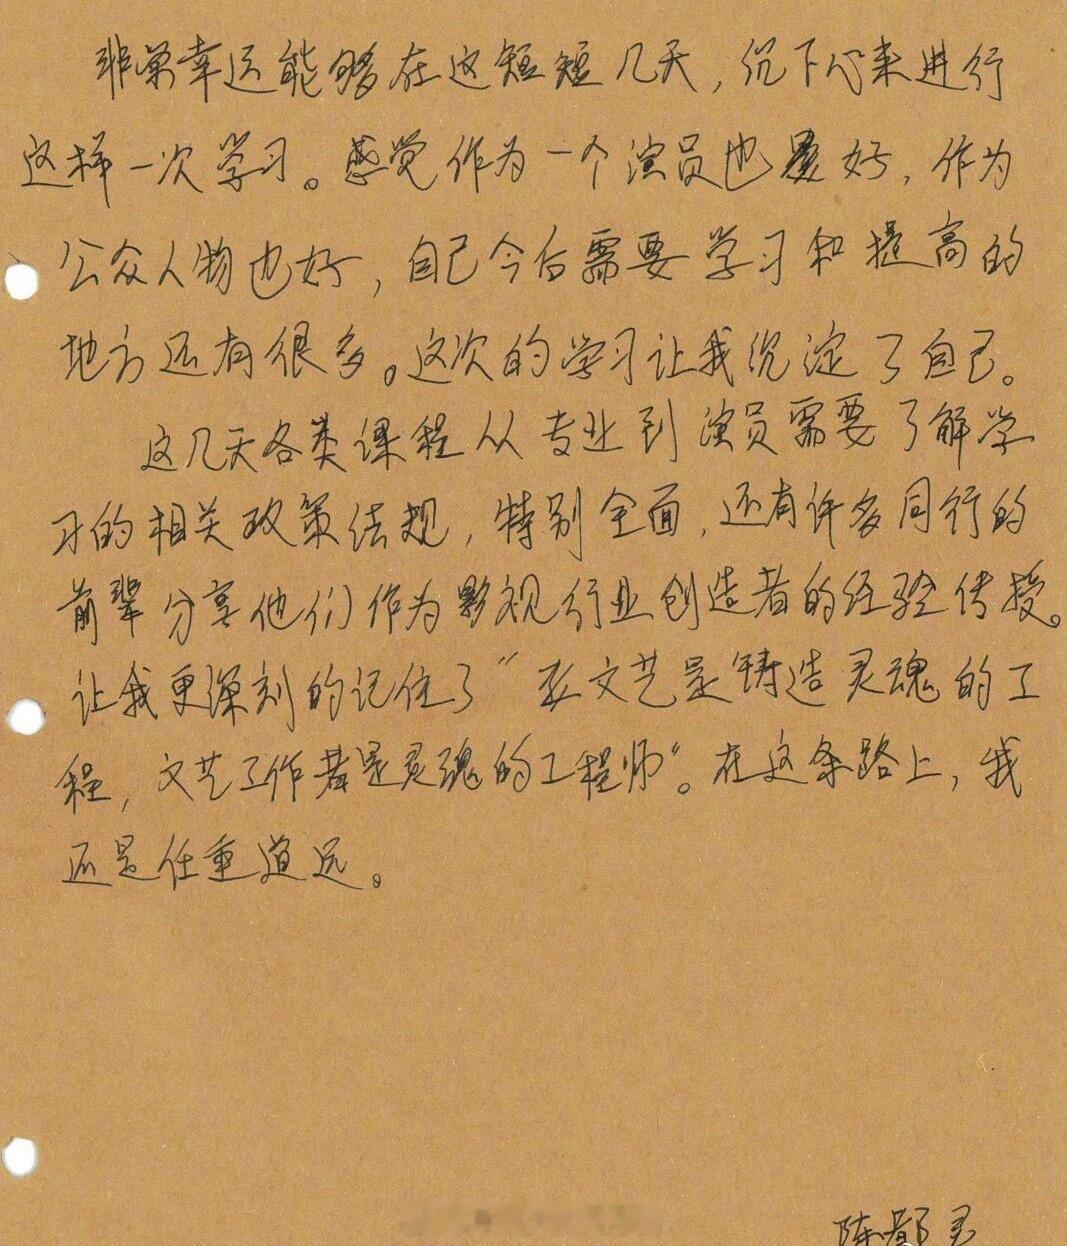 非常幸运能够在这短短几天，沉下心来进行
这样一次学习。感觉作为一个演员也好，作为
公众人物也好，自己今后需要学习和提高的
地方还有很多。这次的学习让我沉淀了自己。
这几天各类课程从专业到演员需要了解学
习的相关政策法规，特别全面，还有许多同行的
前辈分享他们作为影视行业创造者的经验传授。
让我更深刻的记住了“文艺是铸造灵魂的工
程，文艺工作者是灵魂的工程师”。在这条路上，我
还是任重道远。
陈都灵